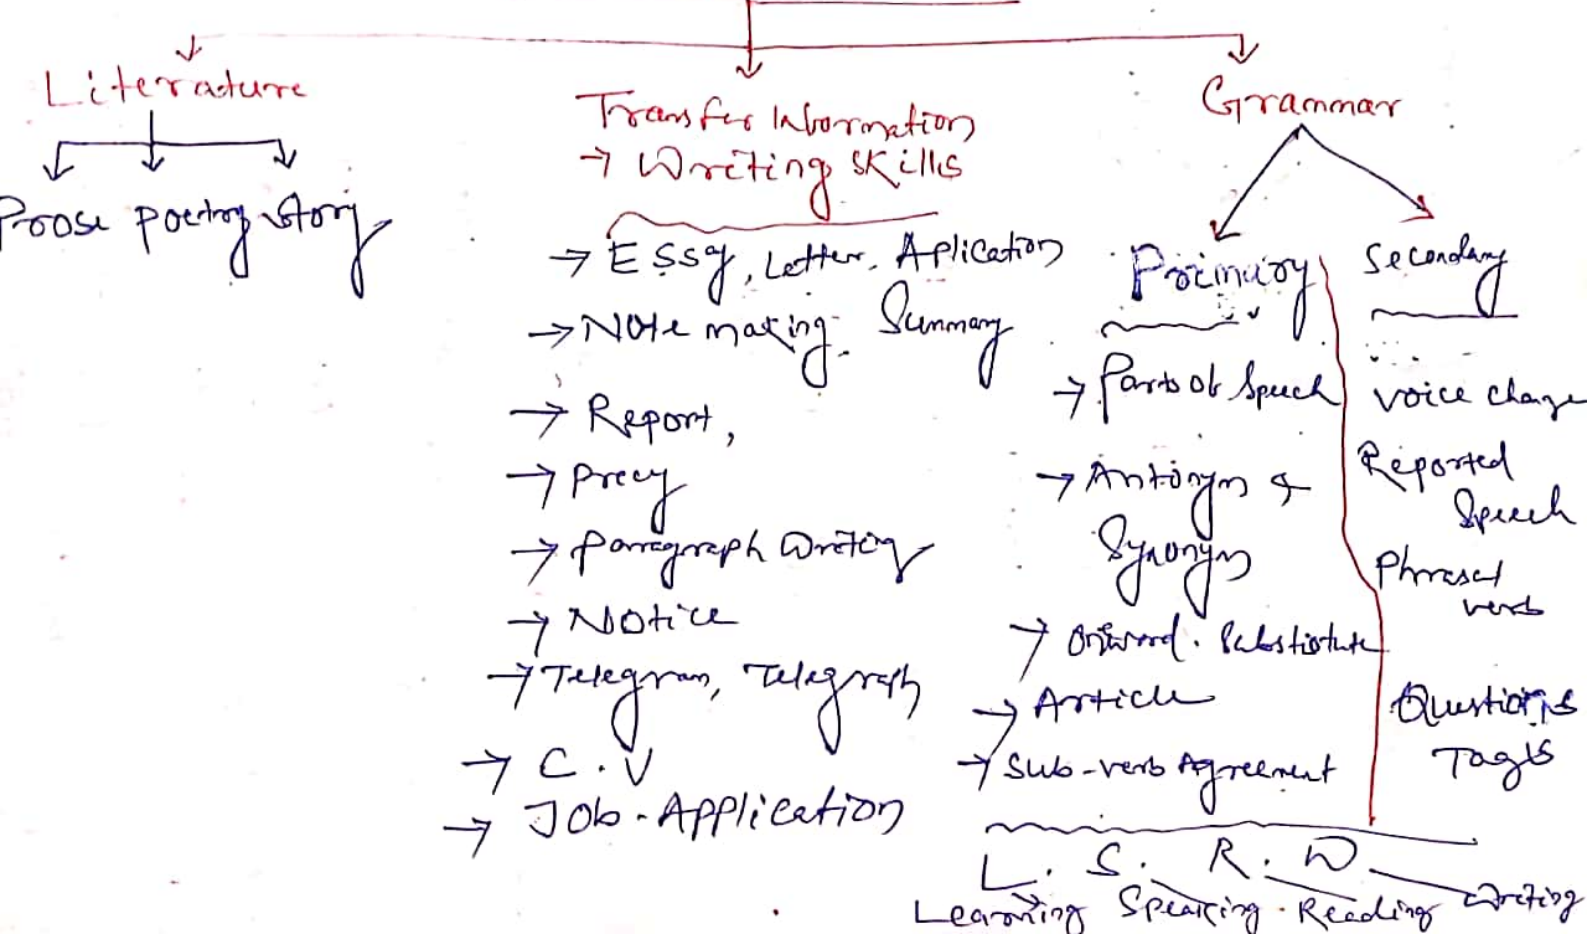 Literature
Prose poetry story
Transfer Information
→ Writing skills
→ Essay, Letter, Aplication
→ Note making. Summary
→ Report,
→ Precy
→ Paragraph Writing
→ Notice
→ Telegram, Telegraph
→ C.V
→ Job-Application
Grammar
Primary
→ Parts of Speech
→ Antonym &
Synonym
→ Article
→ Sub-verb Agreement
Secondary
Voice change
Reported
Speech
Phrasal
verb
Questions
Tags
L. S. R. W
Learning Speaking. Reading Writing